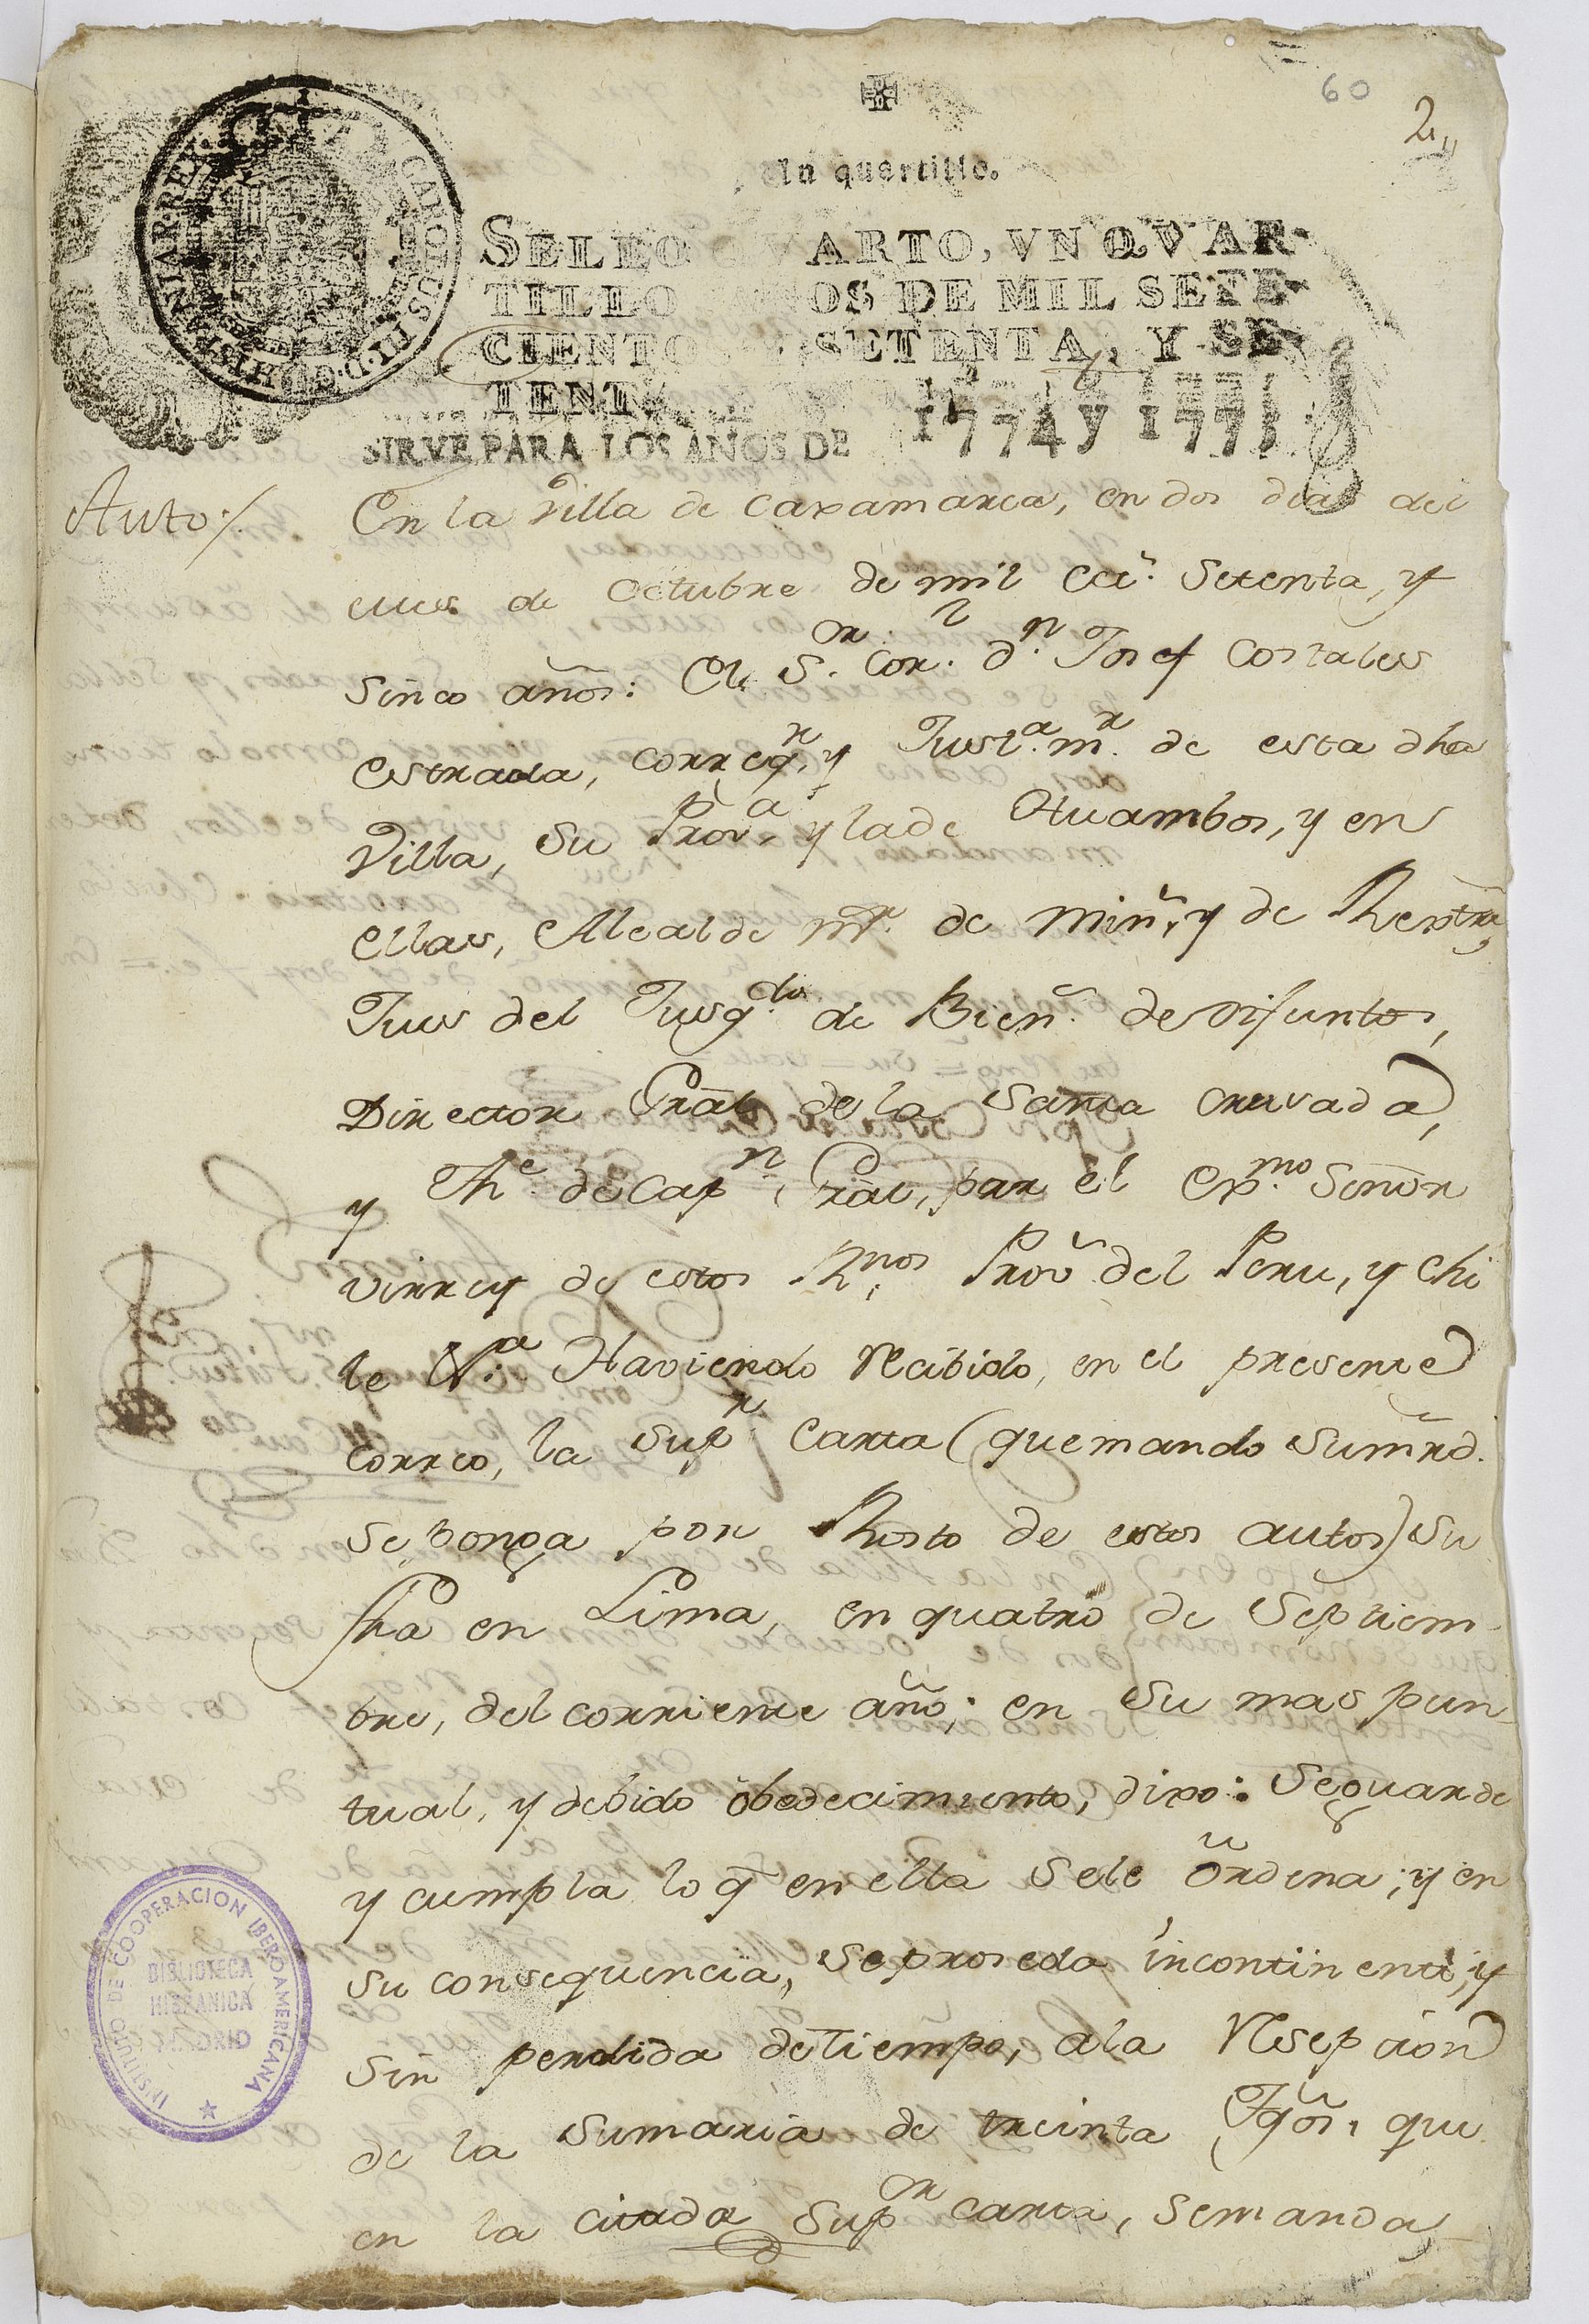 60
2
Un quartillo.
SELLO QVARTO, VN QVAR-
TILLO OS DE MIL SETE-
CIENTO SETENTA, Y SE-
TENT
SIRVE PARA LOS AÑOS DE 1774 y 1775
Auto
En la Villa de Caxamarca, en dos dias del
mes de Octubre de mil setenta, y
sinco años: El S.or Cor.l d.n Josef Costales
estrada, correg.r y Just.a m.r de esta dha
Villa, su Prov.a y la de Huambos, y en
ellas, Alcalde m.r de min.s y de Rextros,
Jues del Jusg.do de Bien.s de difuntos,
Director Gral de la Santa cruzada,
y Th.e de Cap.n Gral, por el Ex.mo Señor
virrey de estos R.nos Prov.s del Peru, y Chi
le V.a Haviendo recibido, en el presente
correo, la Sup.r Carta (que mando su mrd.
se ponga por de estos autos) su
fha en Lima, en quatro de Septiem-
bre, del corriente año; en su mas pun-
tual, y debido obedecimiento, dixo: Se guarde
y cumpla lo q en ella se le ordena; y en
su consequencia, se proseda incontinenti, y
sin perdida de tiempo, a la resepcion
de la sumaria de treinta tgos, que
en la citada Sup.or carta, se manda,
INSTITUTO DE COOPERACION IBEROAMERICANA
BIBLIOTECA
HISPANICA
MADRID